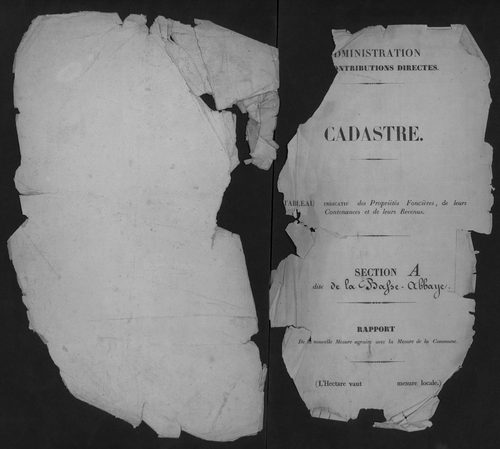 DMINISTRATION
ONTRIBUTIONS DIRECTES.
CADASTRE.
TABLEAU INDICATIF des Propriétés Foncières, de leurs
Contenances et de leurs Revenus.
SECTION A
dite de la Basse-Abbaye.
RAPPORT
De nouvelle Mesure agraire avec la Mesure de la Commune.
(L'Hectare vaut mesure locale.)